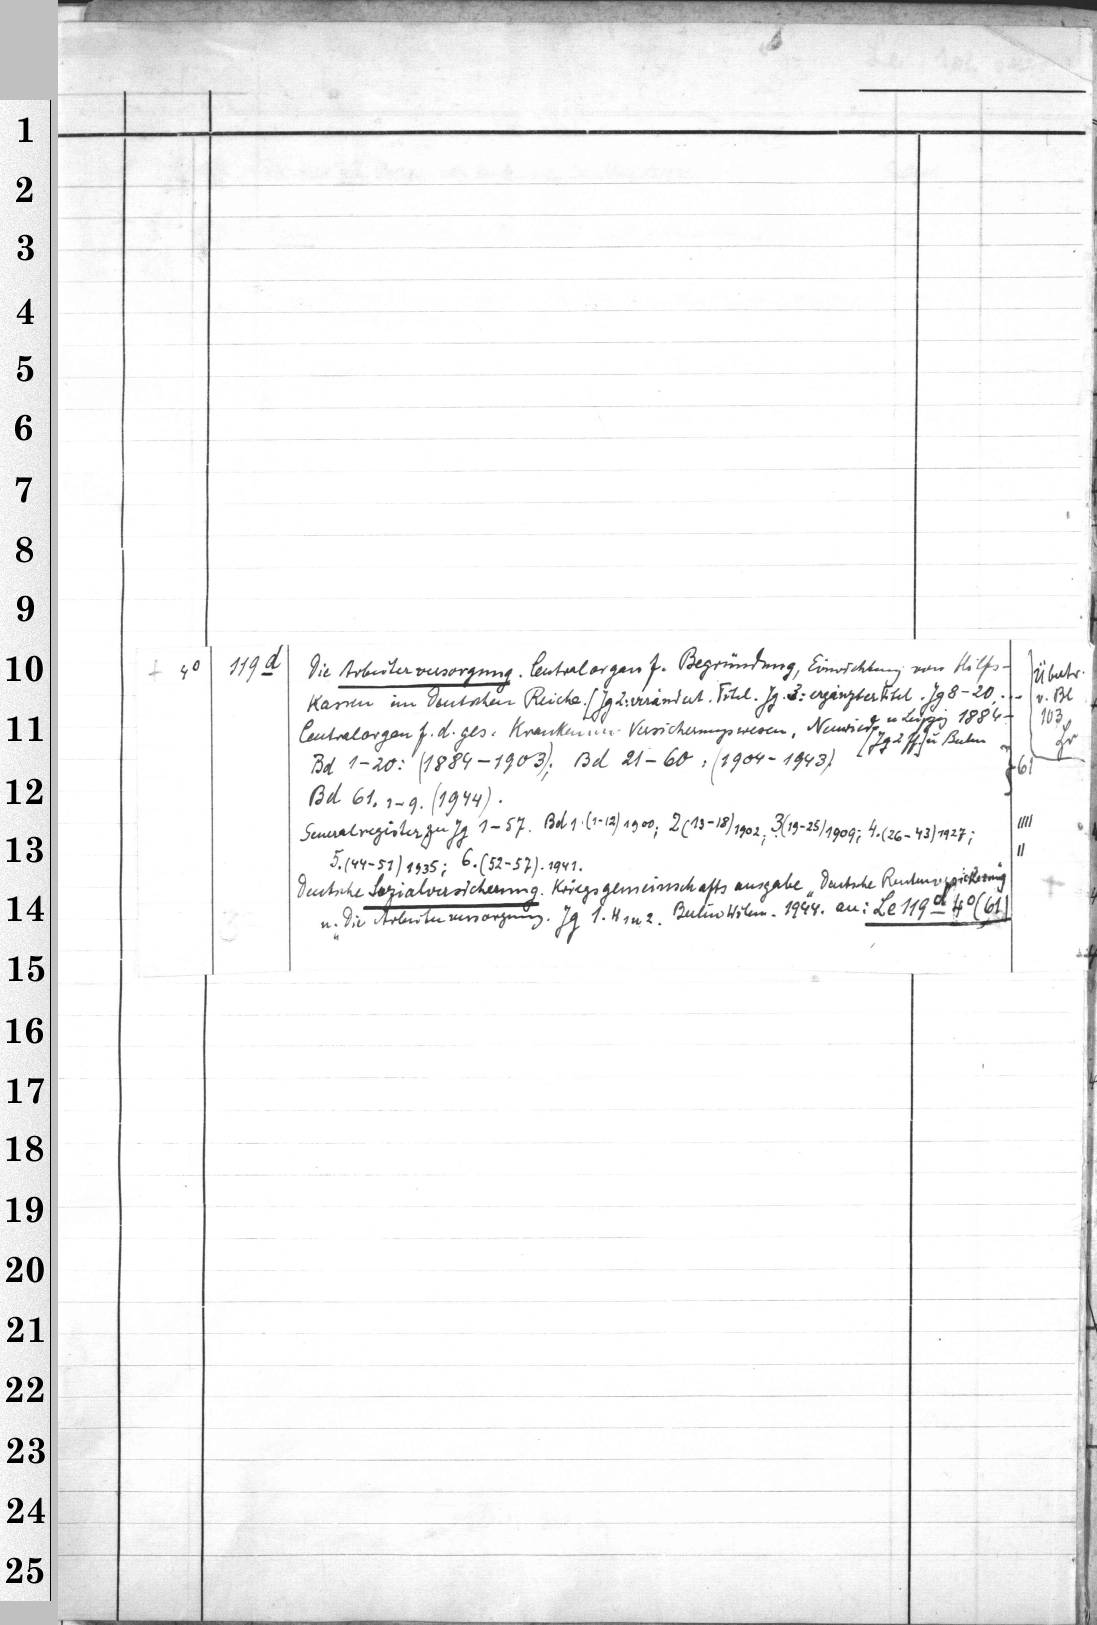 1
2
3
4
5
6
7
8
9
10
11
12
13
14
15
16
17
18
19
20
21
22
23
24
25
+ 4° 119 d Die Arbeiterversorgung. Centralorgan f. Begründung, Einrichtung von Hilfs-
Kassen im Deutschen Reiche. [Jg 2: verändert. Titel. Jg. 3: ergänzter Titel. Jg 8-20: -
Centralorgan f. d. ges. Kranken- Versicherungswesen, Neuwied u Leipzig 1884-
[Jg 2 ff] u Berlin
Bd 1-20: (1884-1903); Bd 21-60: (1904-1943). } 61
Bd 61. 1-9. (1944).
Generalregister zu Jg 1-57. Bd 1. (1-12) 1900; 2 (13-18) 1902; 3. (19-25) 1909; 4. (26-43) 1927; IIII
5. (44-51) 1935; 6. (52-57). 1941. II
Deutsche Sozialversicherung. Kriegsgemeinschaftsausgabe „Deutsche Rentenversicherung"
u. „Die Arbeiterversorgung. Jg 1. H 1 u 2. Berlin 1944. an: Le 119 d 4° (61)
Übertr.
v. Bl
103